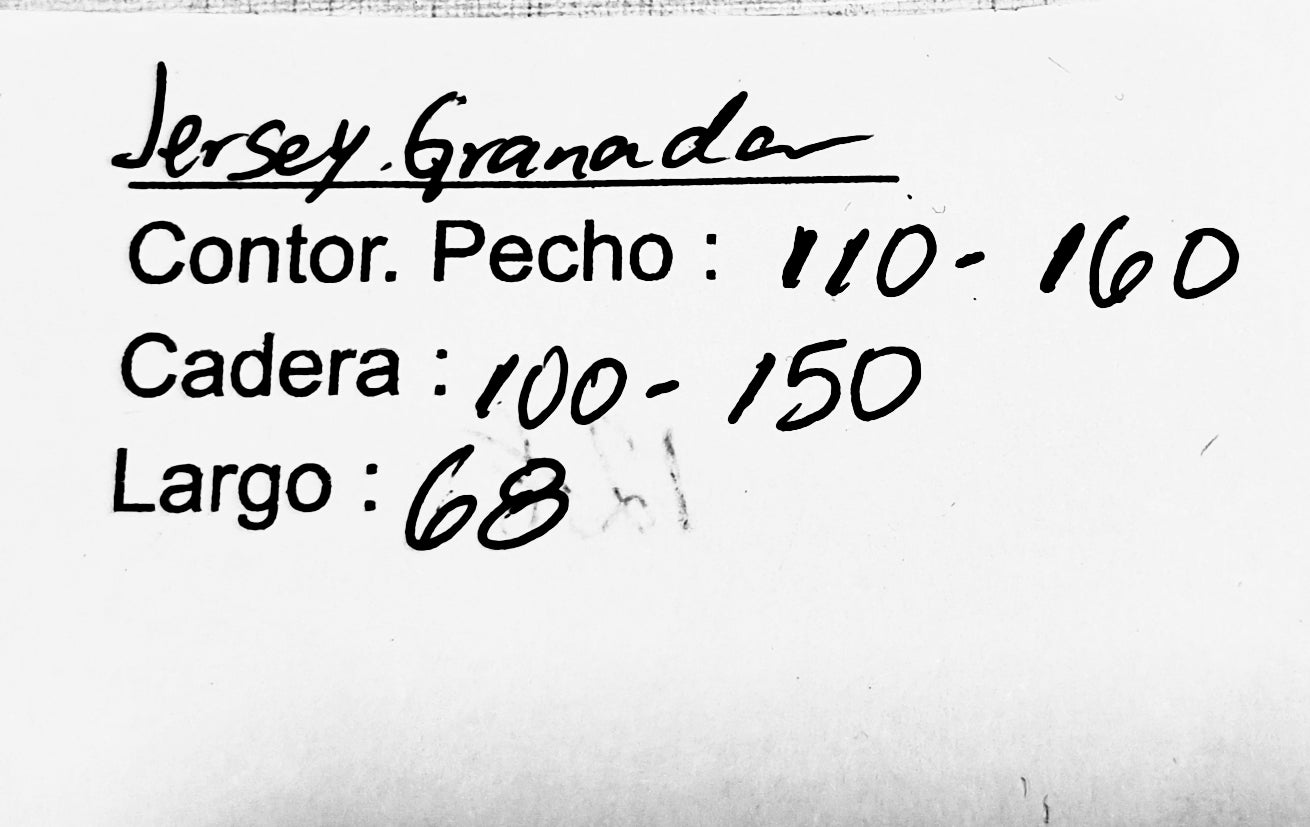 Jersey. Granada
Contor. Pecho : 110 - 160
Cadera : 100 - 150
Largo : 68